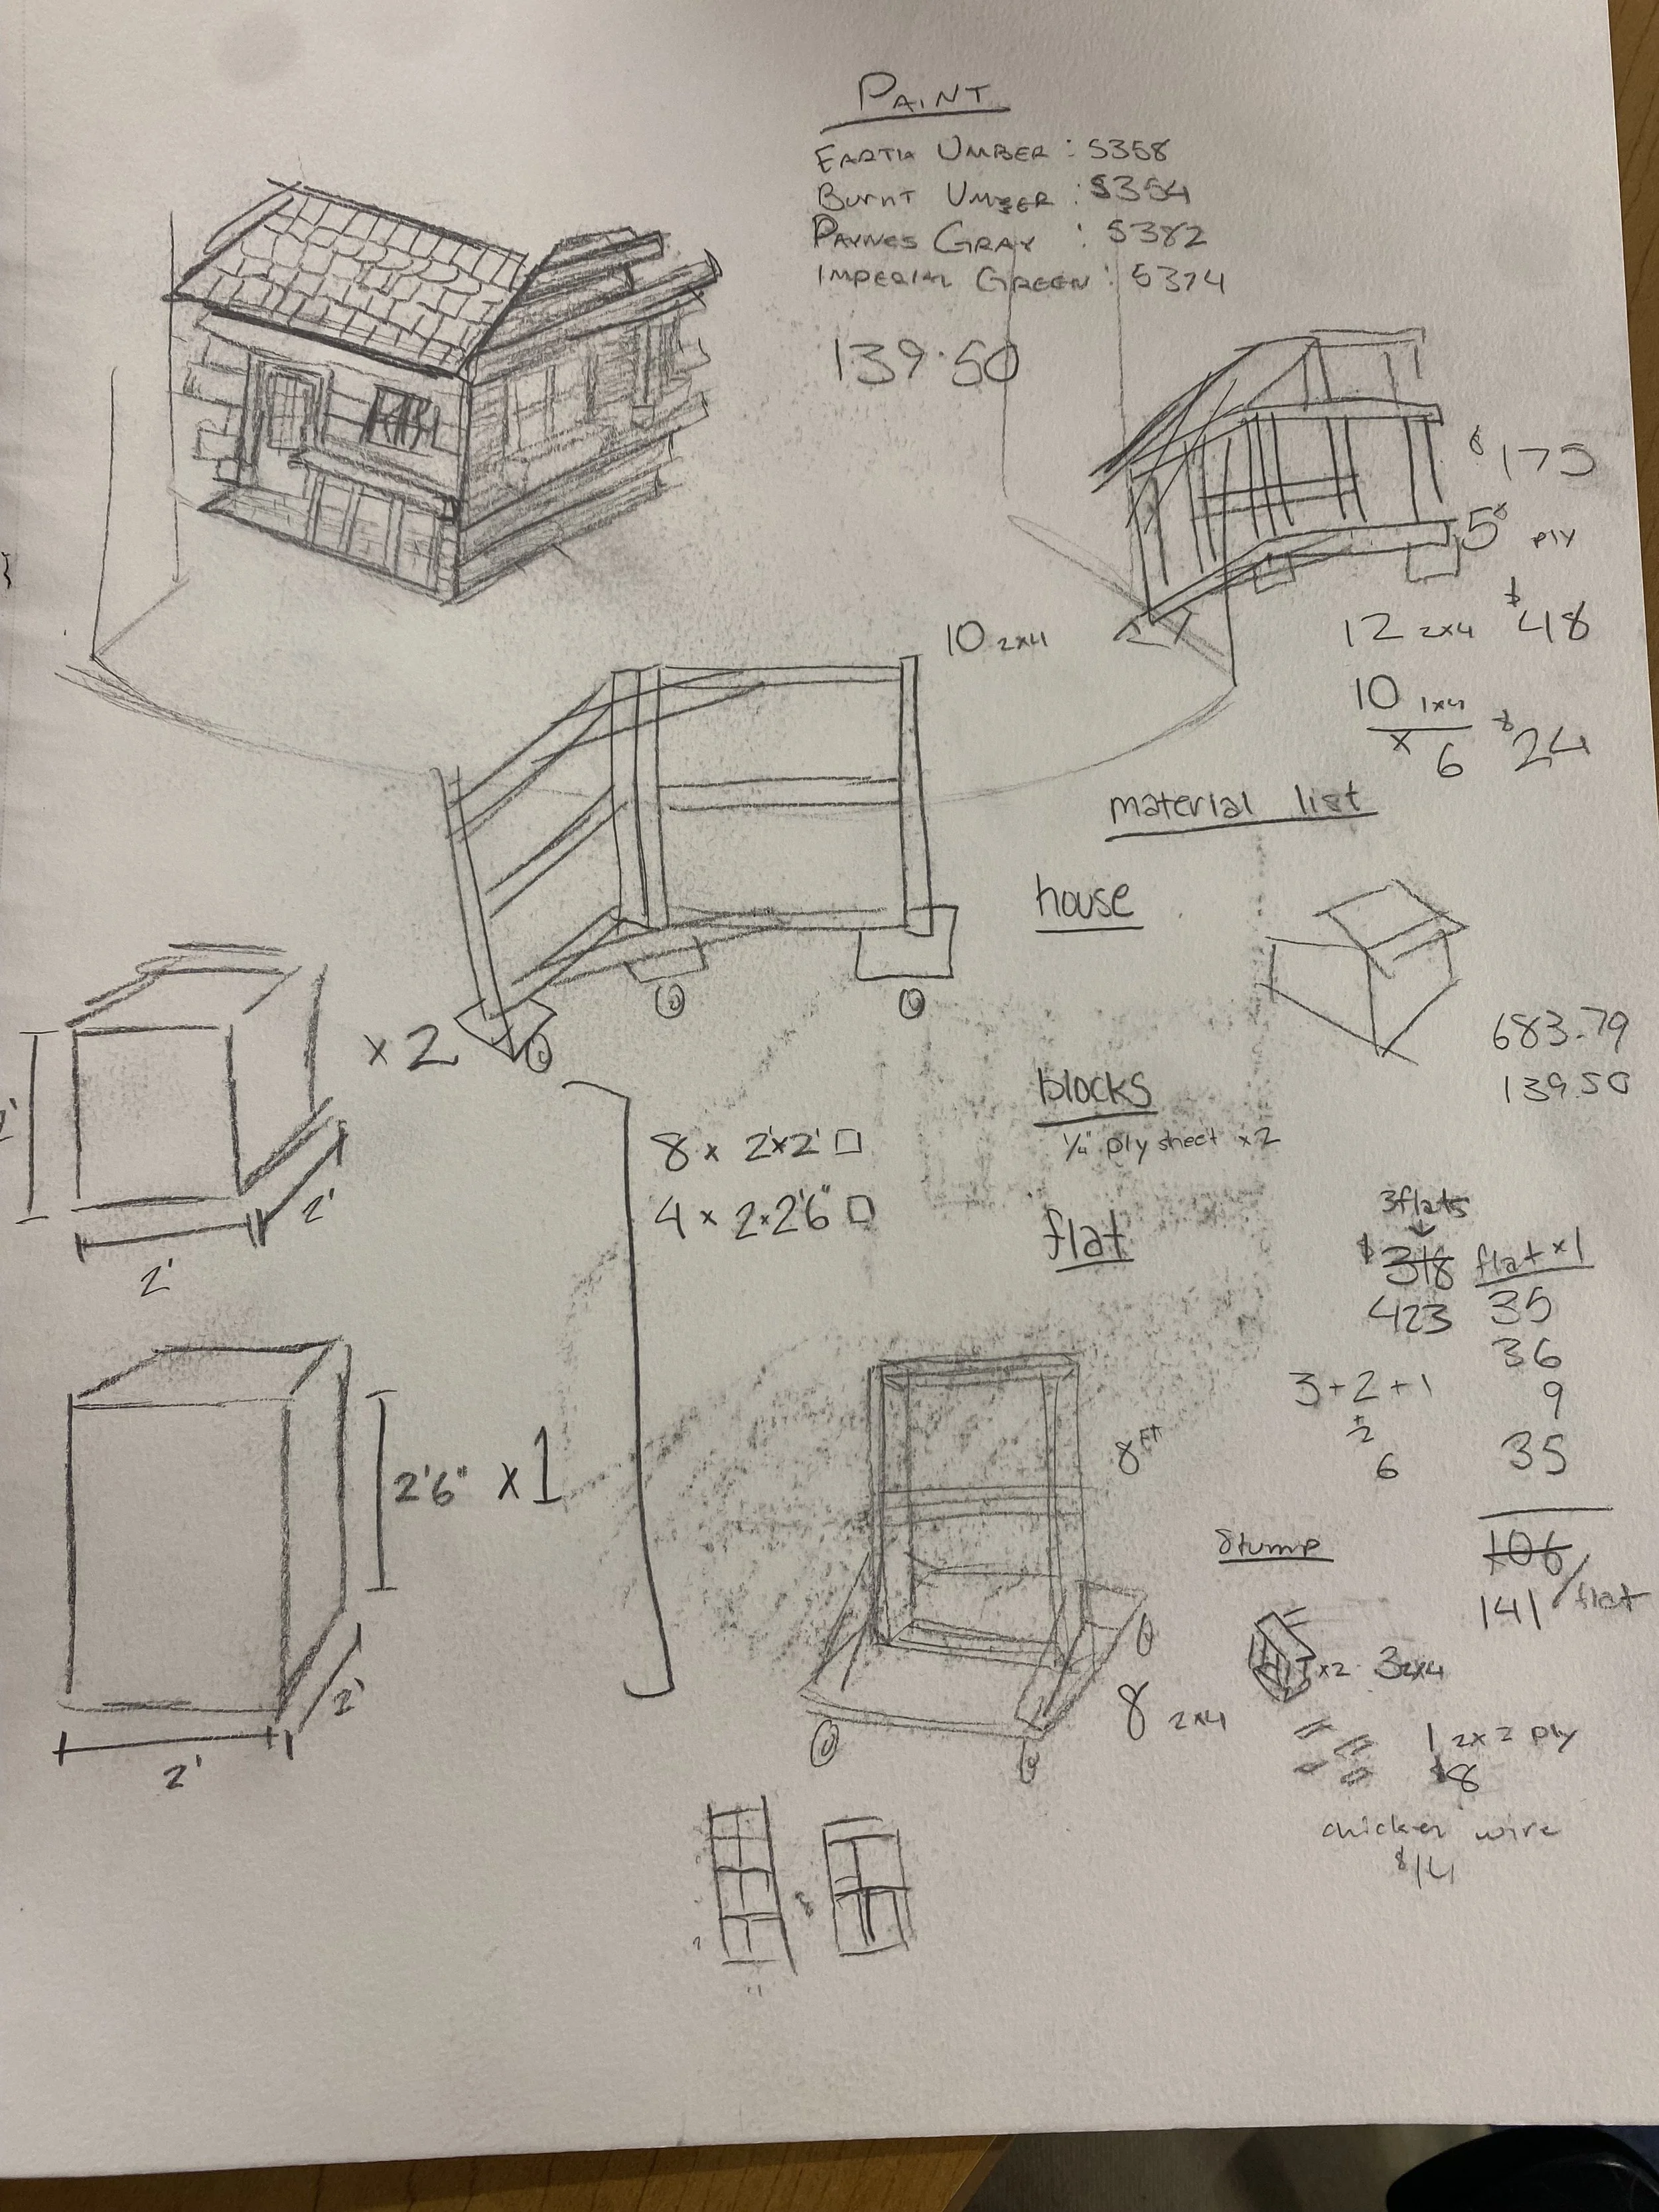 PAINT
EARTH UMBER : 5358
BURNT UMBER : 5354
PAYNES GRAY : 5382
IMPERIAL GREEN : 5374
139.50
$175
5 ply
12 2x4 $48
10 1x4
x 6 $24
10 2x4
material list
house
683.79
139.50
x2
2'
2'
2'
blocks
1/4" ply sheet x2
8 x 2'x2' □
4 x 2x2'6" □
flat
3flats
$318 flat x1
423 35
36
3+2+1 9
+2
6 35
106
141/flat
8 FT
8 2x4
2'6" x1
2'
2'
Stump
x2 3 2x4
1 2x2 ply
$8
chicken wire
$14